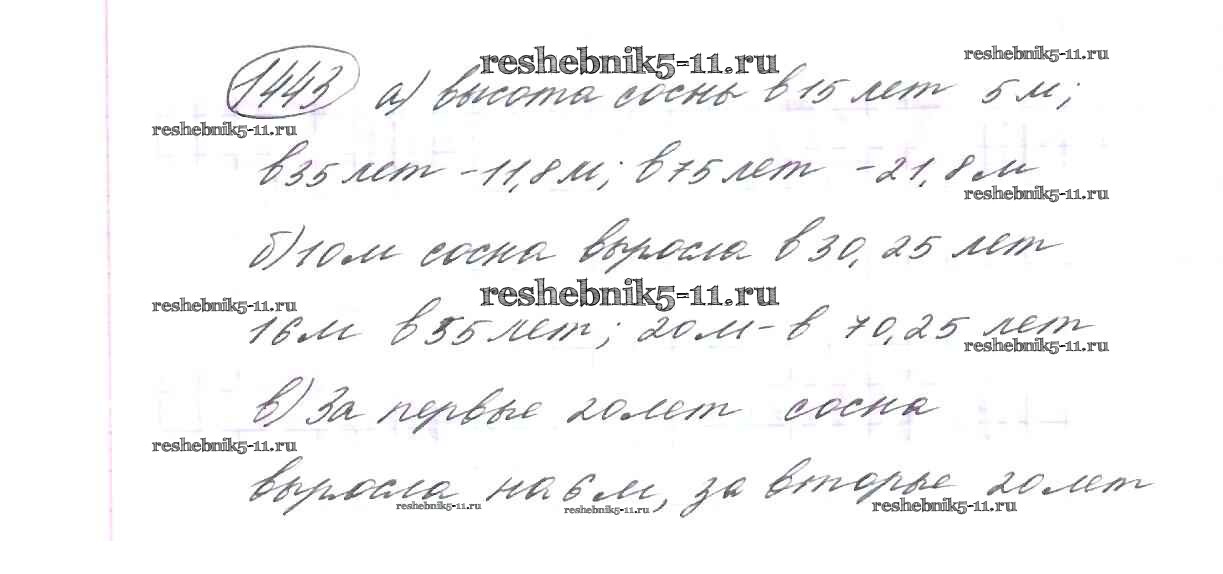 reshebnik5-11.ru
reshebnik5-11.ru
1443 а) высота сосны в 15 лет 5 м;
reshebnik5-11.ru
в 35 лет - 11,8 м; в 75 лет - 21,8 м
reshebnik5-11.ru
б) 10 м сосна выросла в 30,25 лет
reshebnik5-11.ru
reshebnik5-11.ru
16 м в 55 лет; 20 м - в 70,25 лет
reshebnik5-11.ru
в) За первые 20 лет сосна
reshebnik5-11.ru
выросла на 6 м, за вторые 20 лет
reshebnik5-11.ru
reshebnik5-11.ru
reshebnik5-11.ru